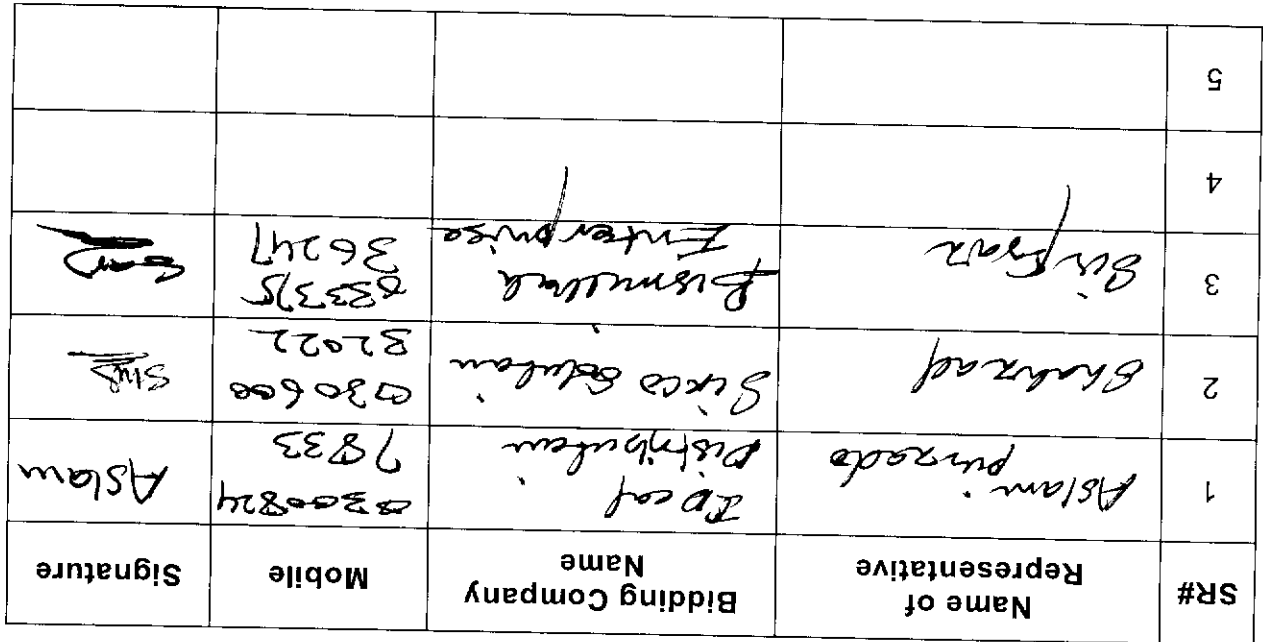 SR#
Name of
Representative
Bidding Company
Name
Mobile
Signature
1
Aslam
pirzado
Distribution
0300824
7833
Aslam
2
Shahzad
Sixco Solution
030600
32022
3
Sirfraz
Bismillah
Enterprise
03335
36247
4
5